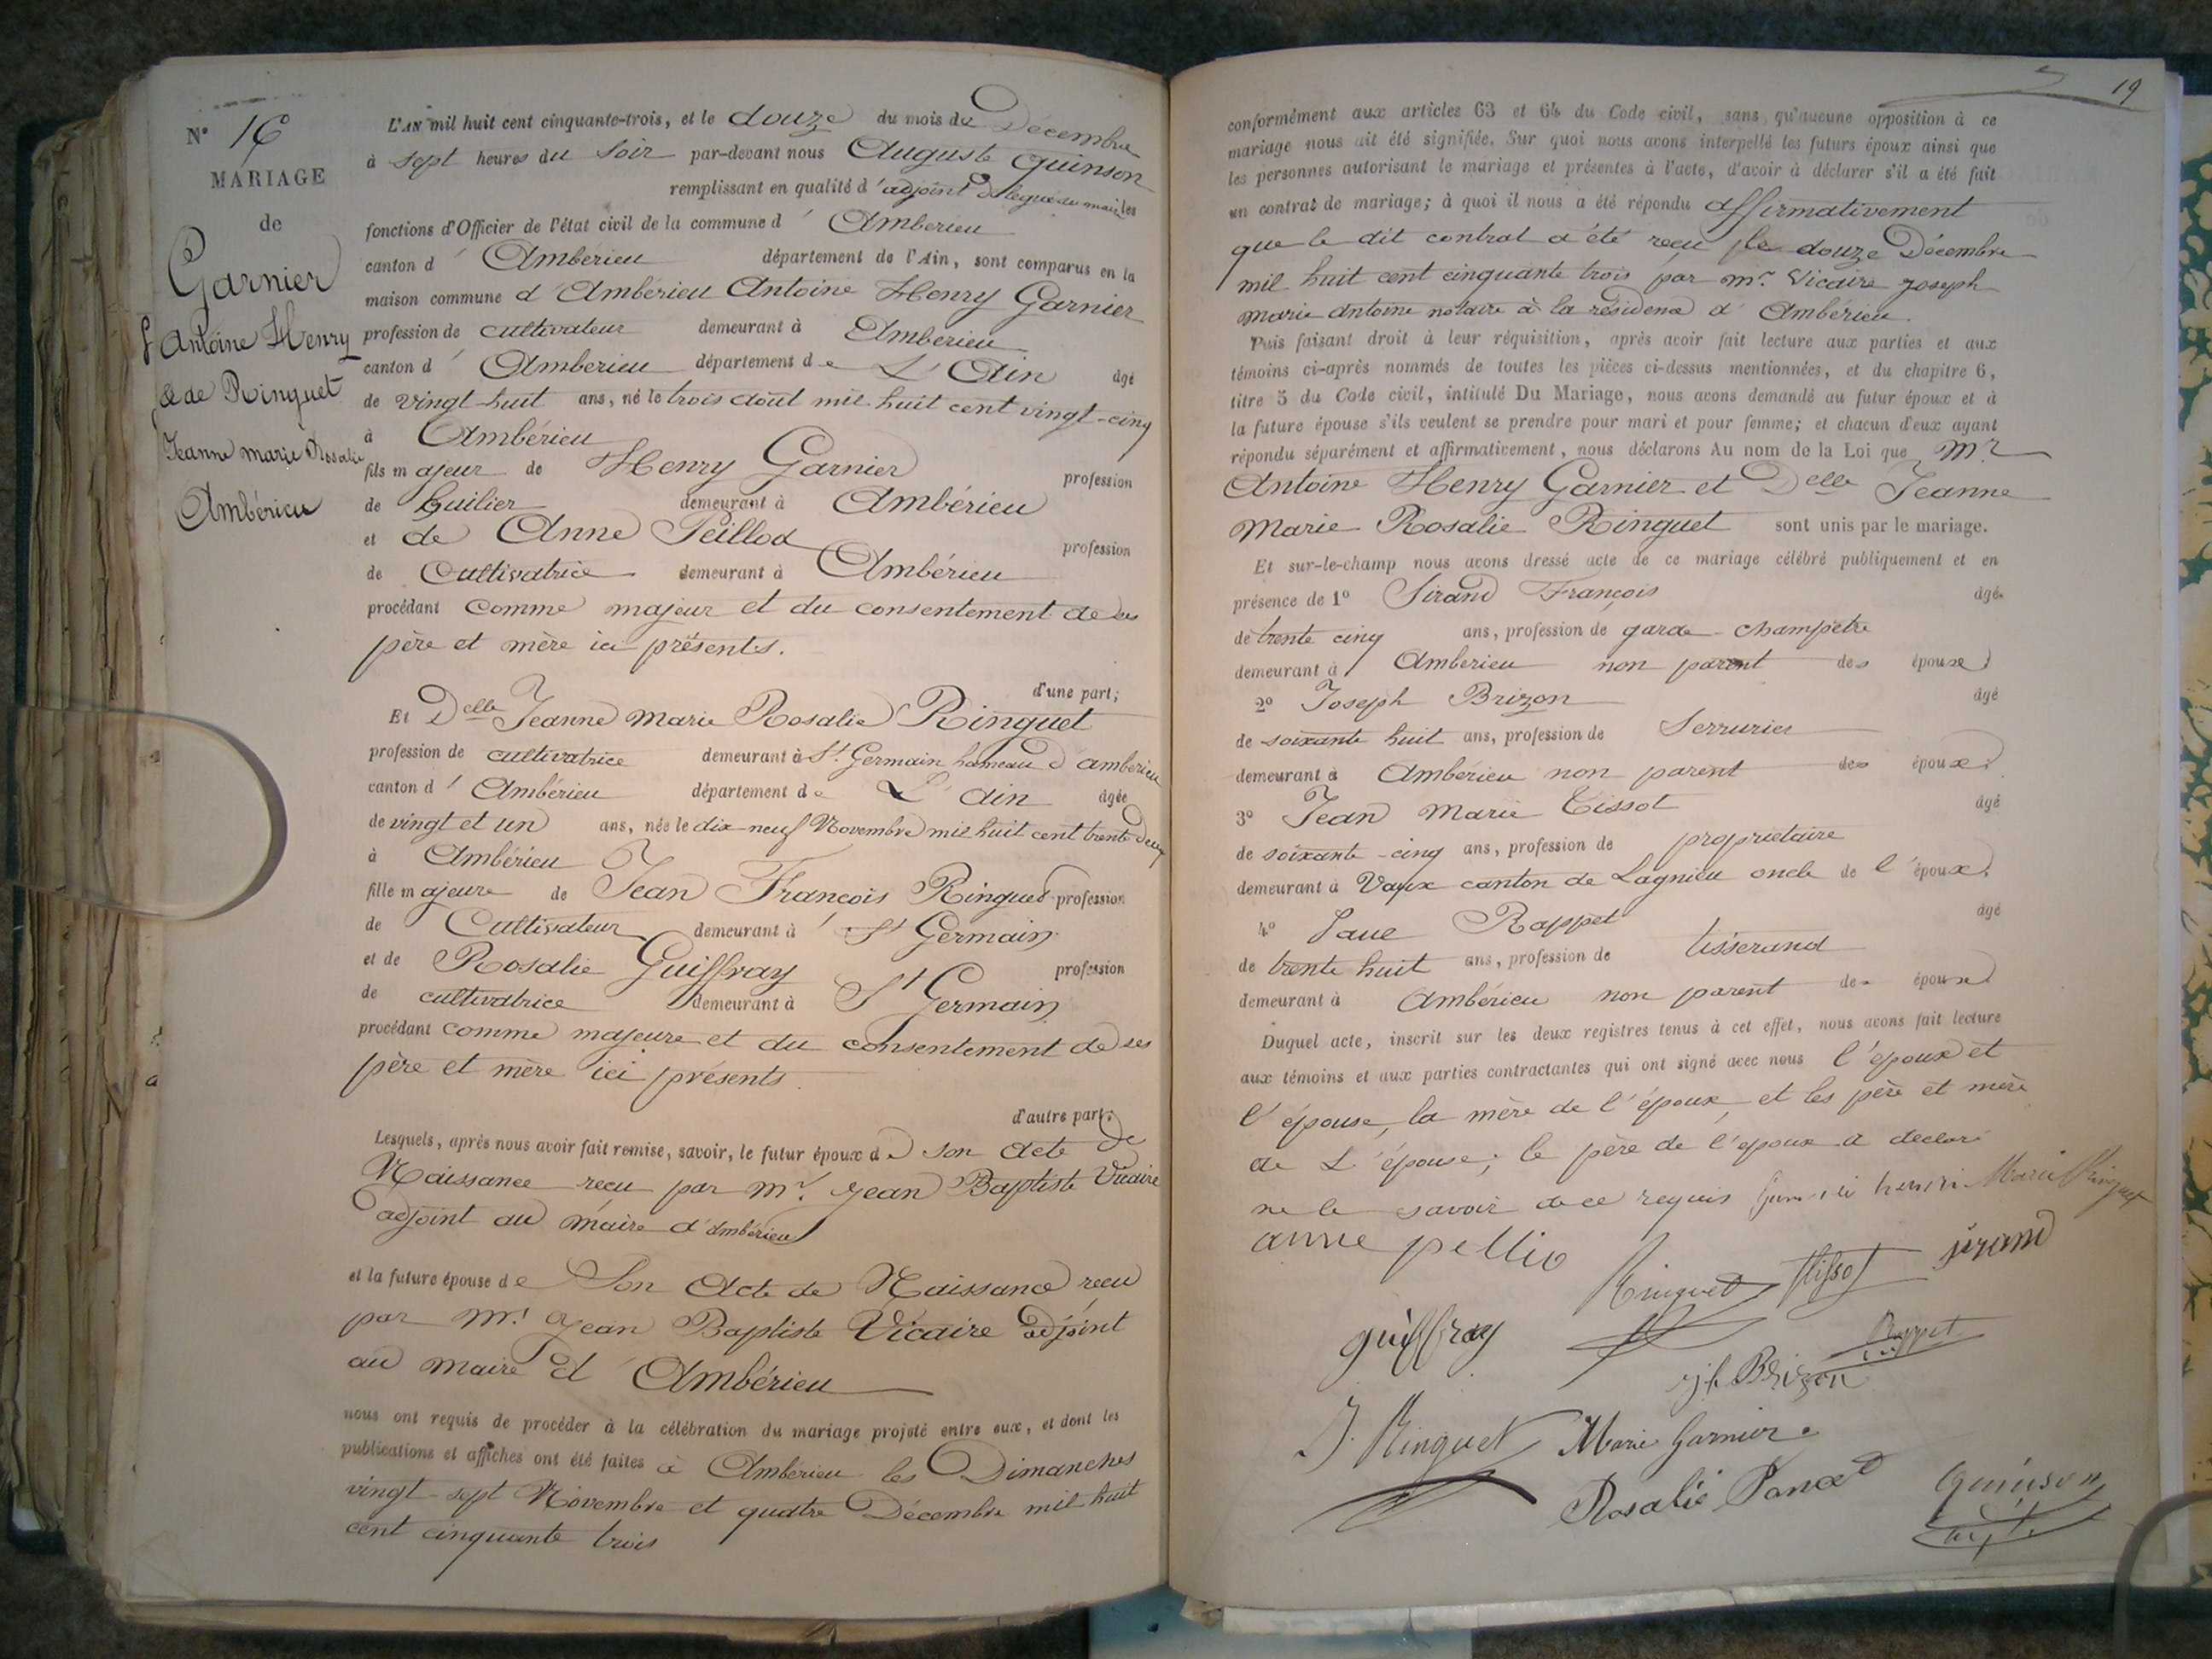 N° 16
MARIAGE
de
Garnier
Antoine Henry
& de Ringuet
Jeanne marie Rosalie
Ambérieu
L'AN mil huit cent cinquante-trois, et le douze du mois de Décembre
à sept heures du soir par-devant nous Auguste Quinson
remplissant en qualité d'adjoint délégué du maire les
fonctions d'Officier de l'état civil de la commune d' Ambérieu
canton d' Ambérieu département de l'Ain, sont comparus en la
maison commune d'Ambérieu Antoine Henry Garnier
profession de cultivateur demeurant à Ambérieu
canton d' Ambérieu département de L'Ain âgé
de vingt-huit ans, né le trois août mil huit cent vingt-cinq
à Ambérieu
fils majeur de Henry Garnier profession
de huilier demeurant à Ambérieu
et de Anne Peillod profession
de Cultivatrice demeurant à Ambérieu
procédant comme majeur et du consentement de ses
père et mère ici présents.
d'une part;
Et Delle Jeanne marie Rosalie Ringuet
profession de cultivatrice demeurant à St. Germain hameau d'ambérieu
canton d' Ambérieu département de L'ain âgée
de vingt et un ans, née le dix-neuf Novembre mil huit cent trente deux
à Ambérieu
fille majeure de Jean François Ringuet profession
de Cultivateur demeurant à St Germain
et de Rosalie Guiffray profession
de cultivatrice demeurant à St Germain
procédant comme majeure et du consentement de ses
père et mère ici présents.
d'autre part;
Lesquels, après nous avoir fait remise, savoir, le futur époux de son acte de
Naissance reçu par mr. Jean Baptiste Vicaire
adjoint au maire d'ambérieu
et la future épouse de Son Acte de Naissance reçu
par mr. Jean Baptiste Vicaire adjoint
au maire d'Ambérieu
nous ont requis de procéder à la célébration du mariage projeté entre eux, et dont les
publications et affiches ont été faites à Ambérieu les Dimanches
vingt-sept Novembre et quatre Décembre mil huit
cent cinquante trois
19
conformément aux articles 63 et 64 du Code civil, sans qu'aucune opposition à ce
mariage nous ait été signifiée. Sur quoi nous avons interpellé les futurs époux ainsi que
les personnes autorisant le mariage et présentes à l'acte, d'avoir à déclarer s'il a été fait
un contrat de mariage; à quoi il nous a été répondu affirmativement
que le dit contrat a été reçu le douze Décembre
mil huit cent cinquante trois par mr. Vicaire joseph
marie antoine notaire à la résidence d'Ambérieu.
Puis faisant droit à leur réquisition, après avoir fait lecture aux parties et aux
témoins ci-après nommés de toutes les pièces ci-dessus mentionnées, et du chapitre 6,
titre 5 du Code civil, intitulé Du Mariage, nous avons demandé au futur époux et à
la future épouse s'ils veulent se prendre pour mari et pour femme; et chacun d'eux ayant
répondu séparément et affirmativement, nous déclarons Au nom de la Loi que Mr
Antoine Henry Garnier et Delle Jeanne
Marie Rosalie Ringuet sont unis par le mariage.
Et sur-le-champ nous avons dressé acte de ce mariage célébré publiquement et en
présence de 1° Sirand François âgé
de trente cinq ans, profession de garde-champêtre
demeurant à Ambérieu non parent des époux
2° Joseph Brizon âgé
de soixante huit ans, profession de Serrurier
demeurant à Ambérieu non parent des époux.
3° Jean Marie Tissot âgé
de soixante-cinq ans, profession de propriétaire
demeurant à Vaux canton de Lagnieu oncle de l'époux.
4° Paul Rappet âgé
de trente huit ans, profession de tisserand
demeurant à Ambérieu non parent des époux
Duquel acte, inscrit sur les deux registres tenus à cet effet, nous avons fait lecture
aux témoins et aux parties contractantes qui ont signé avec nous l'époux et
l'épouse, la mère de l'époux, et les père et mère
de L'épouse; le père de l'époux a déclaré
ne le savoir de ce requis henri Marie Ringuet
anne pellio
Ringuet Tissot sirand
guiffray
Rappet
jh Brizon
J. Ringuet Marie Garnier
Rosalie Poncet Quinson